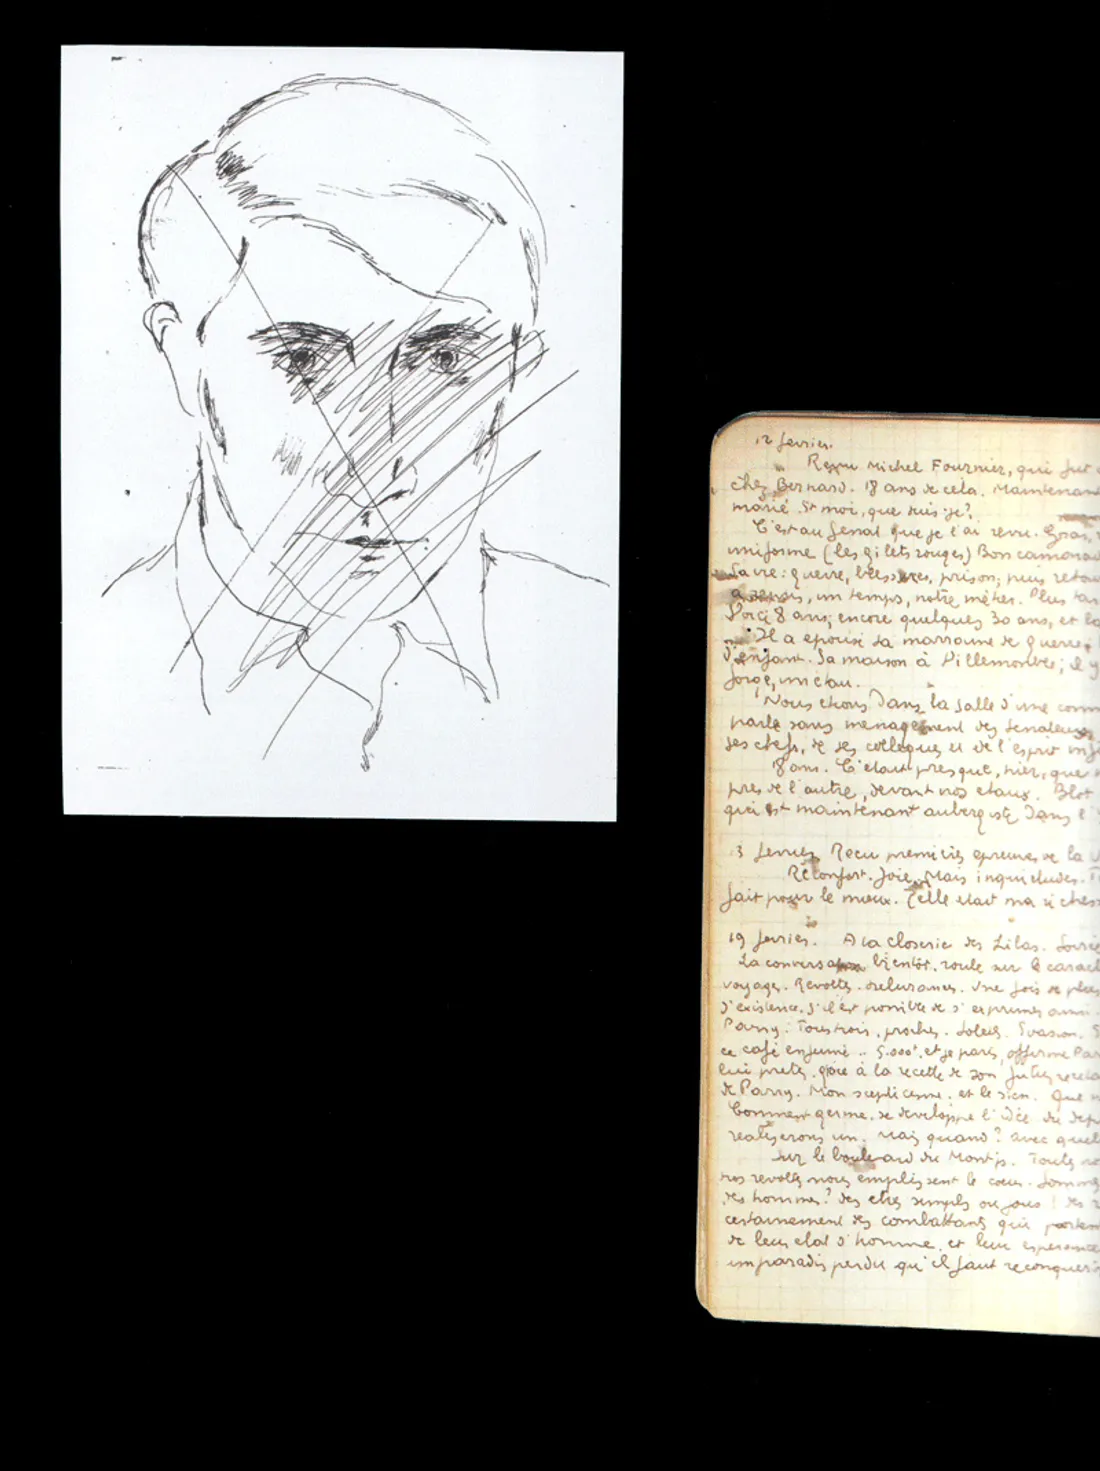 12 février.
Revu Michel Fournier, qui fut
chez Bernard. 18 ans de cela. Maintenant
marié. Et moi, que suis-je?
C'est au Sénat que je l'ai revu. Gras,
uniforme (les gilets rouges) Bon camarad
Sa vie: guerre, blessures, prison; puis retou
un temps, notre métier. Plus tar
Voici 8 ans; encore quelques 30 ans, et
Il a épousé sa marraine de guerre.
d'enfant. Sa maison à Villemomble; il y
forge, un étau.
Nous étions dans la salle d'une comm
parle sans ménagement des sénateurs,
ses chefs, de ses collègues et de l'esprit
18 ans. C'était presque, hier, que
près de l'autre, devant nos étaux. Blot
qui est maintenant aubergiste dans l'
13 février Reçu premières épreuves de la
Réconfort. Joie. Mais inquiétudes.
fait pour le mieux. Telle était ma riches
19 février. A la closerie des Lilas. Soirée
La conversation bientôt, roule sur le caract
voyages. Révoltes. Une fois de plus
d'existence, s'il est possible de s'exprimer ainsi.
Parry. Tous trois, proches. Soleil. Evasion.
ce café enfumé .. 5.000f, et je pars, affirme Par
lui prêts, grâce à la recette de son
de Parry. Mon scepticisme, et le sien. Que
Comment germe, se développe l'idée du dép
réaliserons un. Mais quand? avec quel
sur le boulevard du Montp. Toutes
nos révoltes nous emplissent le cœur. Sommes
des hommes? des êtres simples ou fous!
certainement des combattants qui porten
de leur état d'homme, et leur espérance
un paradis perdu qu'il faut reconquéri